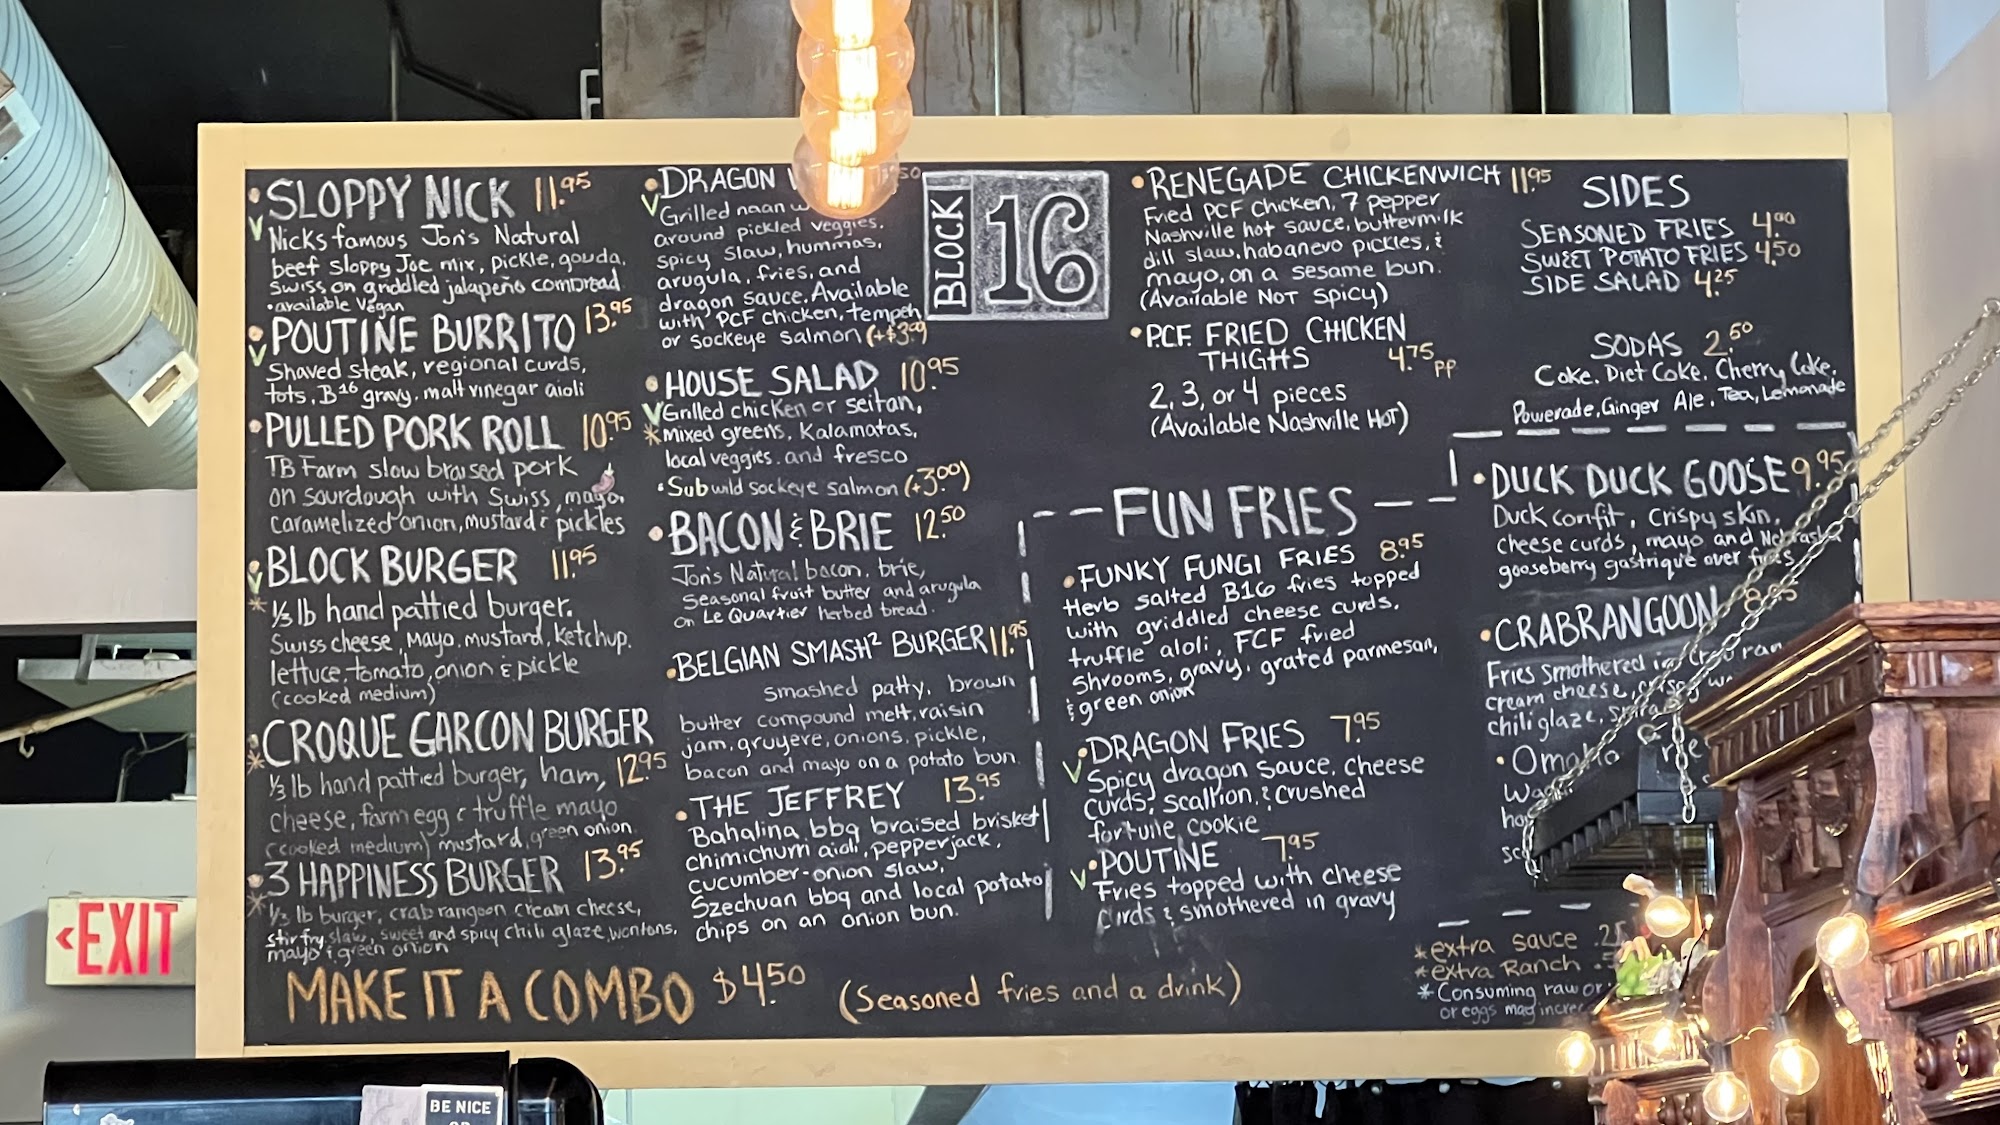 SLOPPY NICK 11.95
Nicks famous Jon's Natural
beef sloppy Joe mix, pickle, gouda,
swiss on griddled jalapeño cornbread
•available Vegan
POUTINE BURRITO 13.95
Shaved steak, regional curds,
tots, B16 gravy, malt vinegar aioli
PULLED PORK ROLL 10.95
TB Farm slow braised pork
on sourdough with Swiss, mayo,
caramelized onion, mustard & pickles
BLOCK BURGER 11.95
* 1/3 lb hand pattied burger.
Swiss cheese, Mayo, mustard, ketchup,
lettuce, tomato, onion & pickle
(cooked medium)
CROQUE GARCON BURGER
1/3 lb hand pattied burger, ham, 12.95
cheese, farm egg & truffle mayo
(cooked medium) mustard, green onion
3 HAPPINESS BURGER 13.95
* 1/3 lb burger, crab rangoon cream cheese,
stirfry slaw, sweet and spicy chili glaze, wontons,
mayo & green onion
MAKE IT A COMBO $4.50 (Seasoned fries and a drink)
DRAGON
Grilled naan
around pickled veggies,
spicy slaw, hummas,
arugula, fries, and
dragon sauce. Available
with PCF chicken, tempeh
or sockeye salmon (+$3.00)
HOUSE SALAD 10.95
Grilled chicken or seitan,
* mixed greens, Kalamatas,
local veggies, and fresco
•Sub wild sockeye salmon (+3.00)
BACON & BRIE 12.50
Jon's Natural bacon, brie,
seasonal fruit butter and arugula
on Le Quartier herbed bread.
BELGIAN SMASH² BURGER 11.95
smashed patty, brown
butter compound melt, raisin
jam, gruyere, onions, pickle,
bacon and mayo on a potato bun.
THE JEFFREY 13.95
Bahalina bbq braised brisket
chimichurri aioli, pepperjack,
cucumber-onion slaw,
Szechuan bbq and local potato
chips on an onion bun.
BLOCK 16
RENEGADE CHICKENWICH 11.95
Fried PCF Chicken, 7 pepper
Nashville hot sauce, buttermilk
dill slaw, habanero pickles, &
mayo, on a sesame bun.
(Available NOT spicy)
PCF FRIED CHICKEN
THIGHS 4.75 pp
2, 3, or 4 pieces
(Available Nashville Hot)
FUN FRIES
FUNKY FUNGI FRIES 8.95
Herb salted B16 fries topped
with griddled cheese curds,
truffle aioli, FCF fried
shrooms, gravy, grated parmesan,
& green onion
DRAGON FRIES 7.95
Spicy dragon sauce, cheese
curds, scallion, & crushed
fortune cookie
POUTINE 7.95
Fries topped with cheese
curds & smothered in gravy
SIDES
SEASONED FRIES 4.00
SWEET POTATO FRIES 4.50
SIDE SALAD 4.25
SODAS 2.50
Coke, Diet Coke, Cherry Coke,
Powerade, Ginger Ale, Tea, Lemonade
DUCK DUCK GOOSE 9.95
Duck confit, crispy skin,
cheese curds, mayo and Nebraska
gooseberry gastrique over fries
CRABRANGOON 8.95
Fries smothered in crab ran
cream cheese, crispy
chili glaze,
Omaha
* extra sauce .25
* extra Ranch
* Consuming raw or
or eggs may increa
EXIT
BE NICE
OR